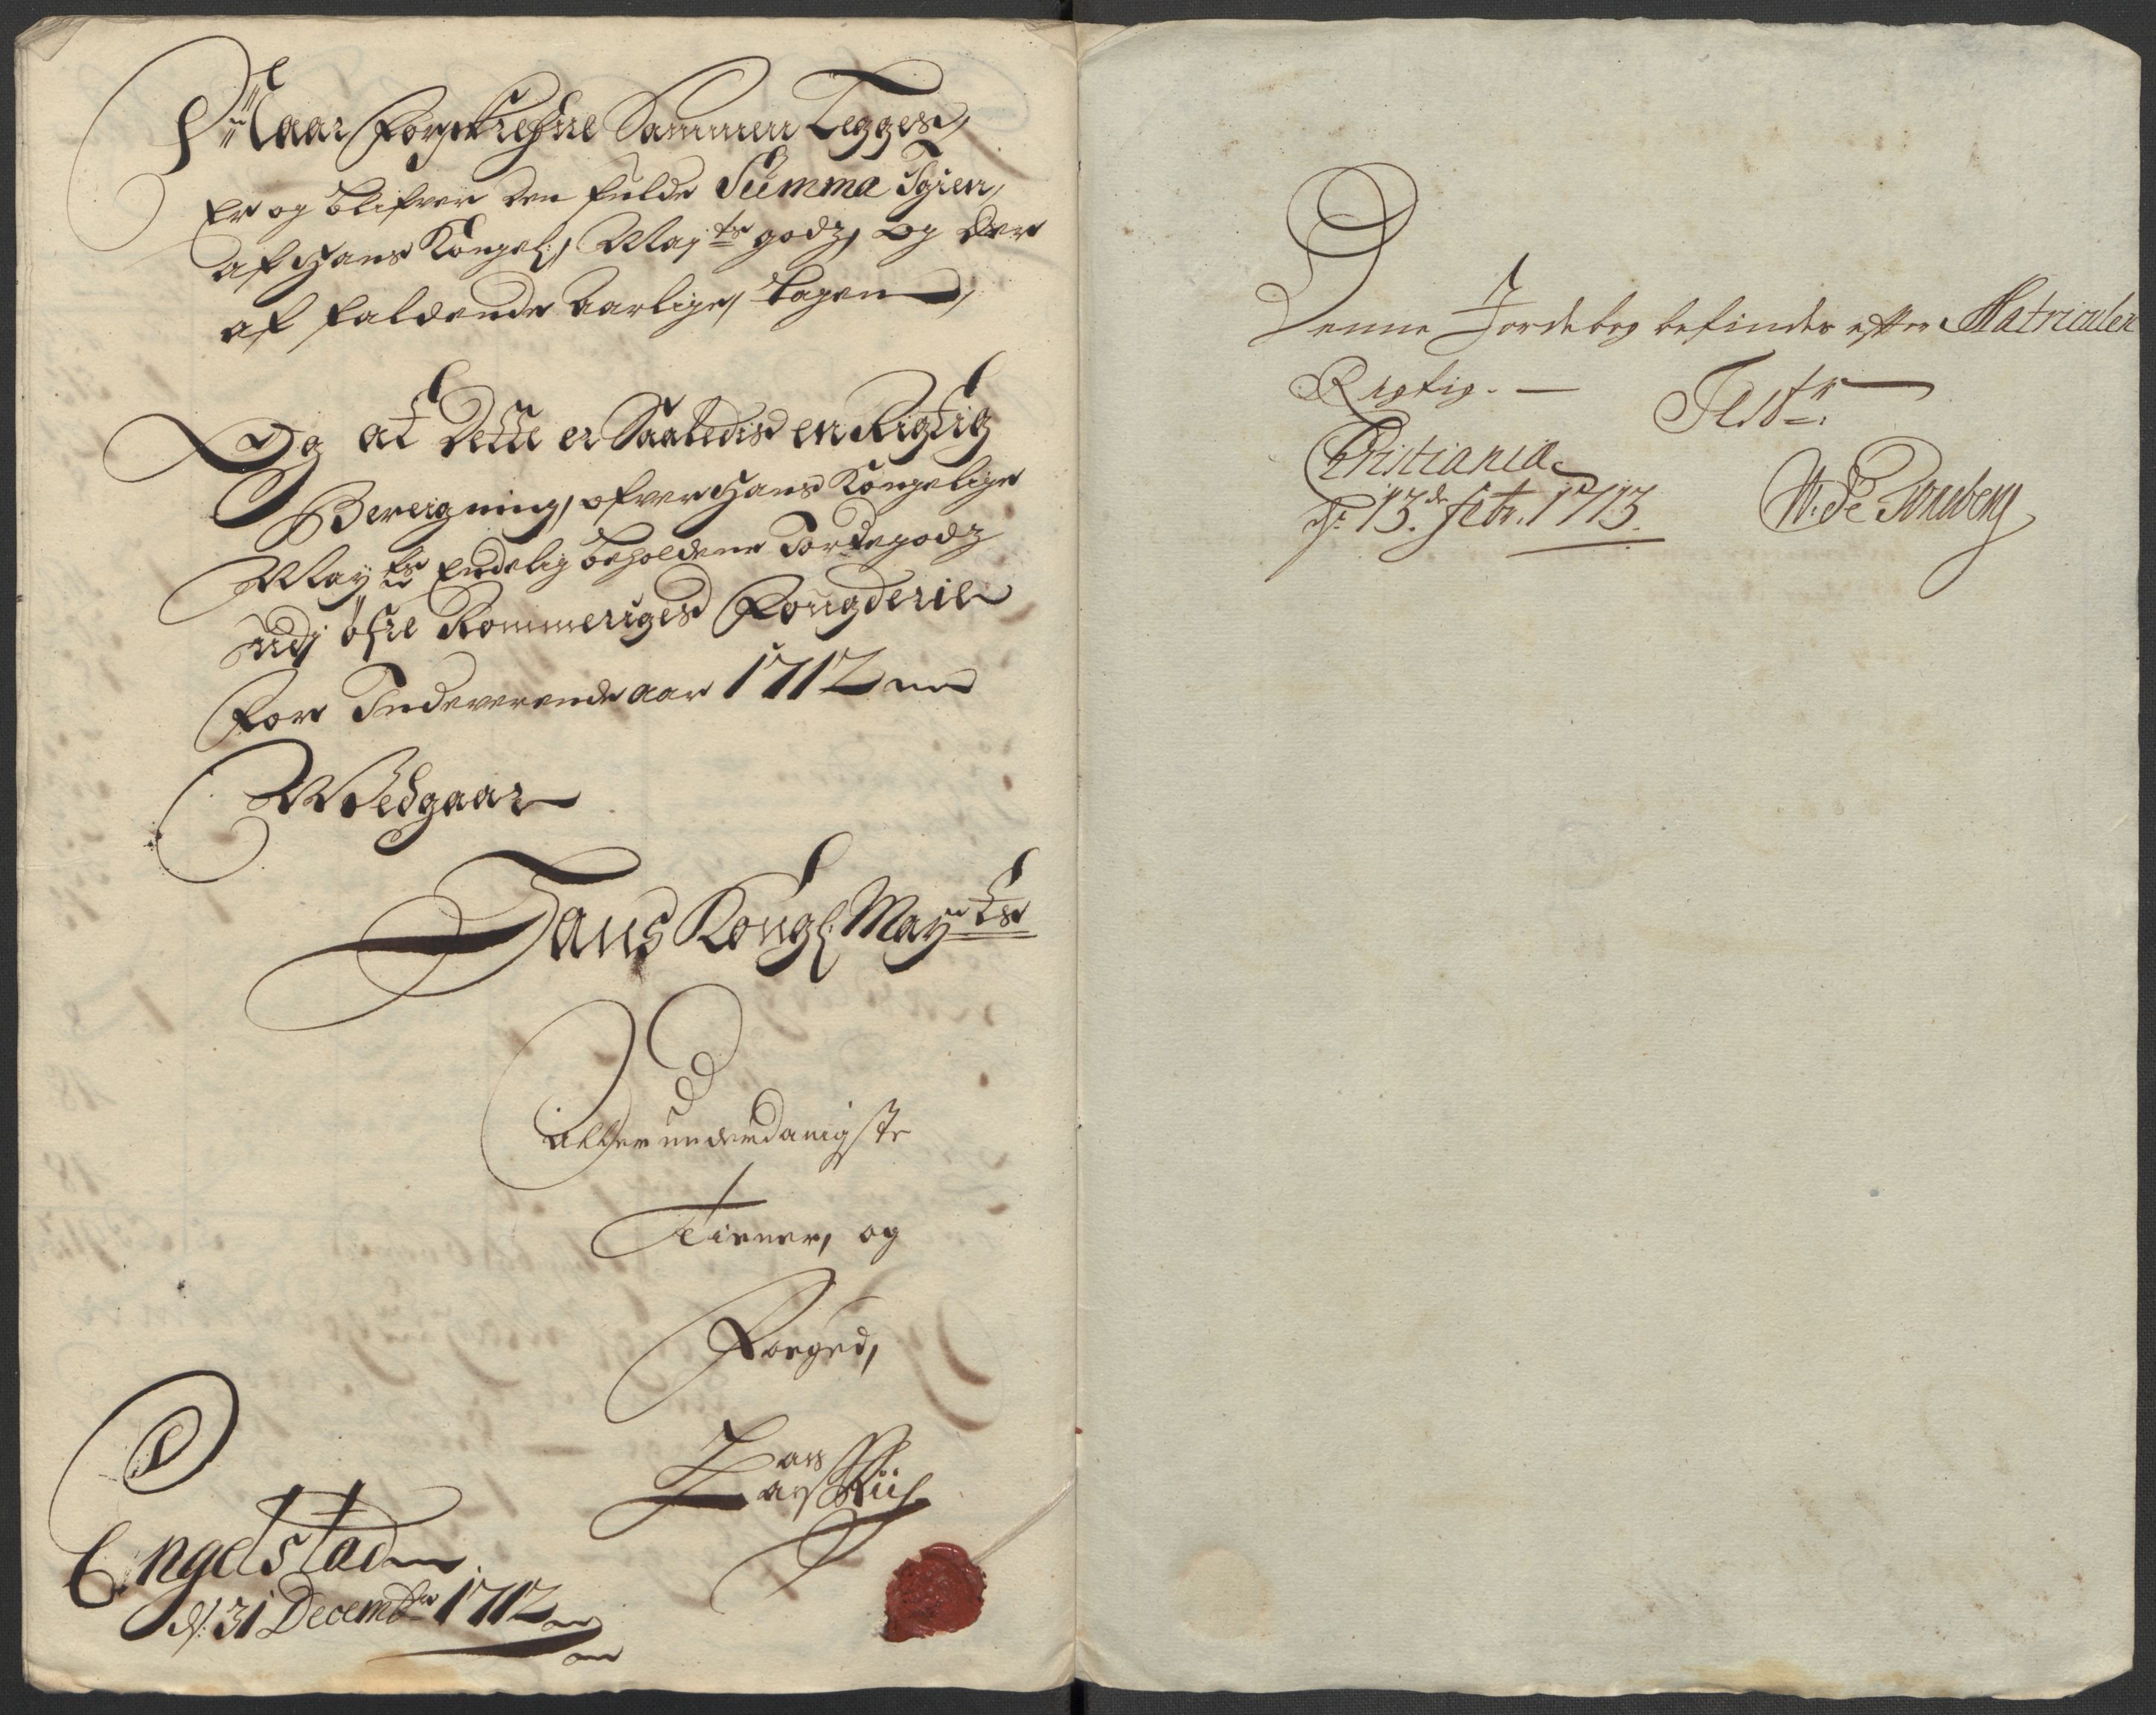 Naar forschrefne Sammen Legges,
Er og blifver den fulde Summa Igien,
af Hans Kongel: May:ts godz, og der
af faldende Aarlige, Tagen,
Og at Dette er Saaledis en Rigtig
Beregning, ofver Hans Kongelige
May:ts Endelig beholdene Jordegodz
udj Øfre Rommeriges Fougderie
for Indeverende aar 1712
Vedgaar
Hans Kongl: May:ts
Allerunderdanigste
Tiener, og
Foeged,
Engelstad
d: 31 Decembr 1712
Denne Jordebog befindes efter Matriculen
Rigtig. Test:
Christiania
d: 13de febr: 1713.